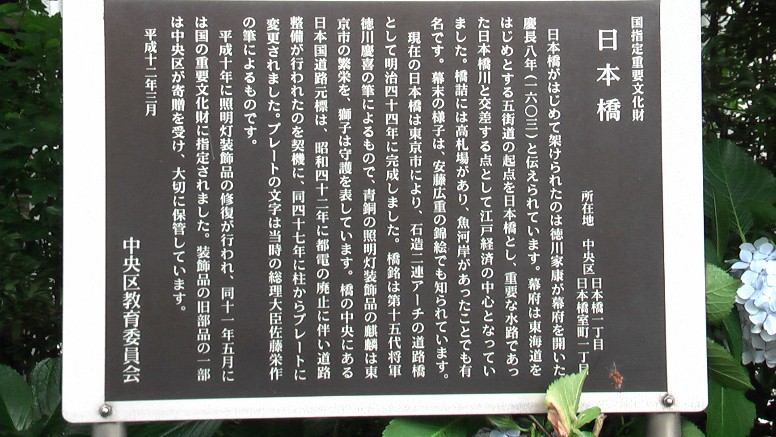 国指定重要文化財
日本橋
所在地　中央区　日本橋一丁目
日本橋室町一丁目
日本橋がはじめて架けられたのは徳川家康が幕府を開いた
慶長八年（一六〇三）と伝えられています。幕府は東海道を
はじめとする五街道の起点を日本橋とし、重要な水路であっ
た日本橋川と交差する点として江戸経済の中心となってい
ました。橋詰には高札場があり、魚河岸があったことでも有
名です。幕末の様子は、安藤広重の錦絵でも知られています。
現在の日本橋は東京市により、石造二連アーチの道路橋
として明治四十四年に完成しました。橋銘は第十五代将軍
徳川慶喜の筆によるもので、青銅の照明灯装飾品の麒麟は東
京市の繁栄を、獅子は守護を表しています。橋の中央にある
日本国道路元標は、昭和四十二年に都電の廃止に伴い道路
整備が行われたのを契機に、同四十七年に柱からプレートに
変更されました。プレートの文字は当時の総理大臣佐藤栄作
の筆によるものです。
平成十年に照明灯装飾品の修復が行われ、同十一年五月に
は国の重要文化財に指定されました。装飾品の旧部品の一部
は中央区が寄贈を受け、大切に保管しています。
平成十二年三月
中央区教育委員会